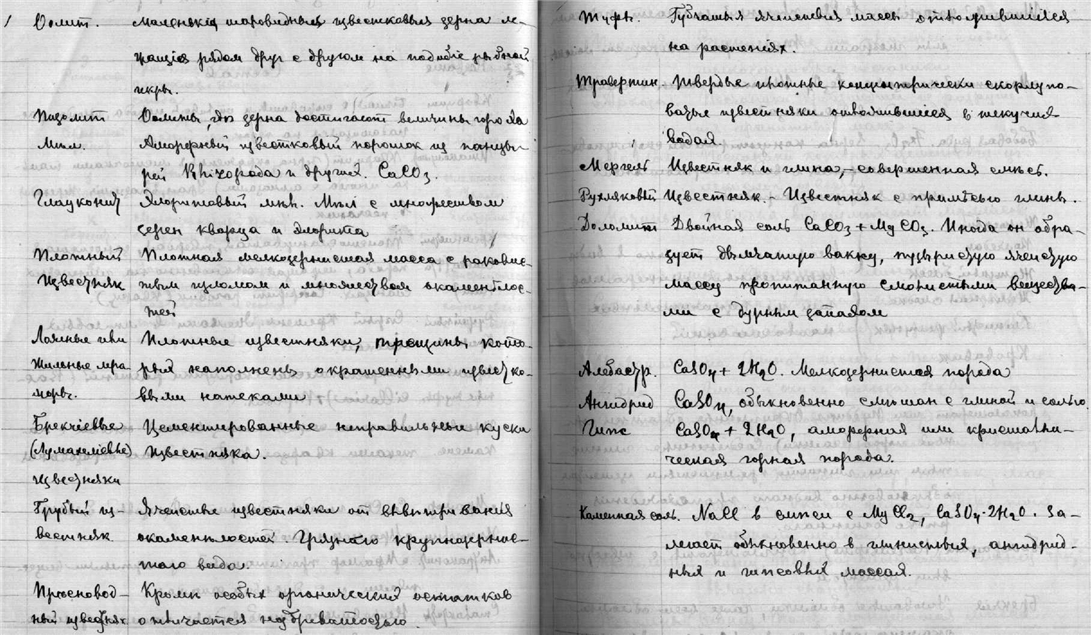 Оолит. Маленькия шаровидныя известковыя зерна ле-
жащия рядом друг с другом на подобие рыбьей
икры.
Пизолит Оолиты, где зерна достигают величины гороха
Мел. Аморфный известковый порошок из панцы-
рей Rhizopoda и другие. CaCO3.
Глауконит Хлоритовый мел. Мел с множеством
зерен кварца и хлорита
Плотный Плотная мелкозернистая масса с раковис-
Известняк тым изломом и множеством окаменелос-
тей
или Плотные известняки, трещины кото-
Жильные мра- рых наполнены окрашенными известко-
моры. выми натеками
Брекчиевые Цементированные неправильные куски
известняка.
известняки
Грубый из- Ячеистые известняки от выветривания
вестняк окаменелостей. Грязного крупнозернис-
таго вида.
Пресновод- Кроме особых органических остатков
ный известняк отличается
Туфы. Губчатыя ячеистыя массы отложившияся
на растениях.
Травертин. Твердые плотные концентрически скорлупо-
ватые известняки отложившиеся в текучих
водах.
Мергель Известняк и глина, – совершенная смесь.
Рухляковый Известняк. - Известняк с примесью глины.
Доломит Двойная соль CaCO3 + MgCO3. Иногда он обра-
зует дымчатую вакку, пузыристую ячеистую
массу пропитанную смолистыми вещества-
ми с бурным запахом
Алебастр. CaSO4 + 2H2O. Мелкозернистая порода
Ангидрид CaSO4, обыкновенно смешан с глиной и солью
Гипс CaSO4 + 2H2O, аморфная или кристалли-
ческая горная порода.
Каменная соль. NaCl в смеси с MgCl2, CaSO4·2H2O. За-
легает обыкновенно в глинистых, ангидрид-
ных и гипсовых массах.